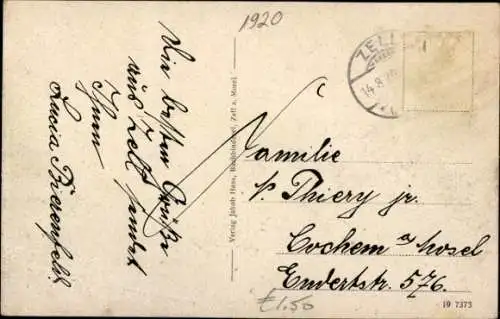 1920
Die besten Grüße
aus Zell sendet
Ihnen
Lucia Bievenfeld
Verlag Jakob Haas, Buchbinderei, Zell a. Mosel
ZELL
14.8.20
Familie
P. Thiery jr.
Cochem a/Mosel
Endertstr. 576.
€1.50
19 7375